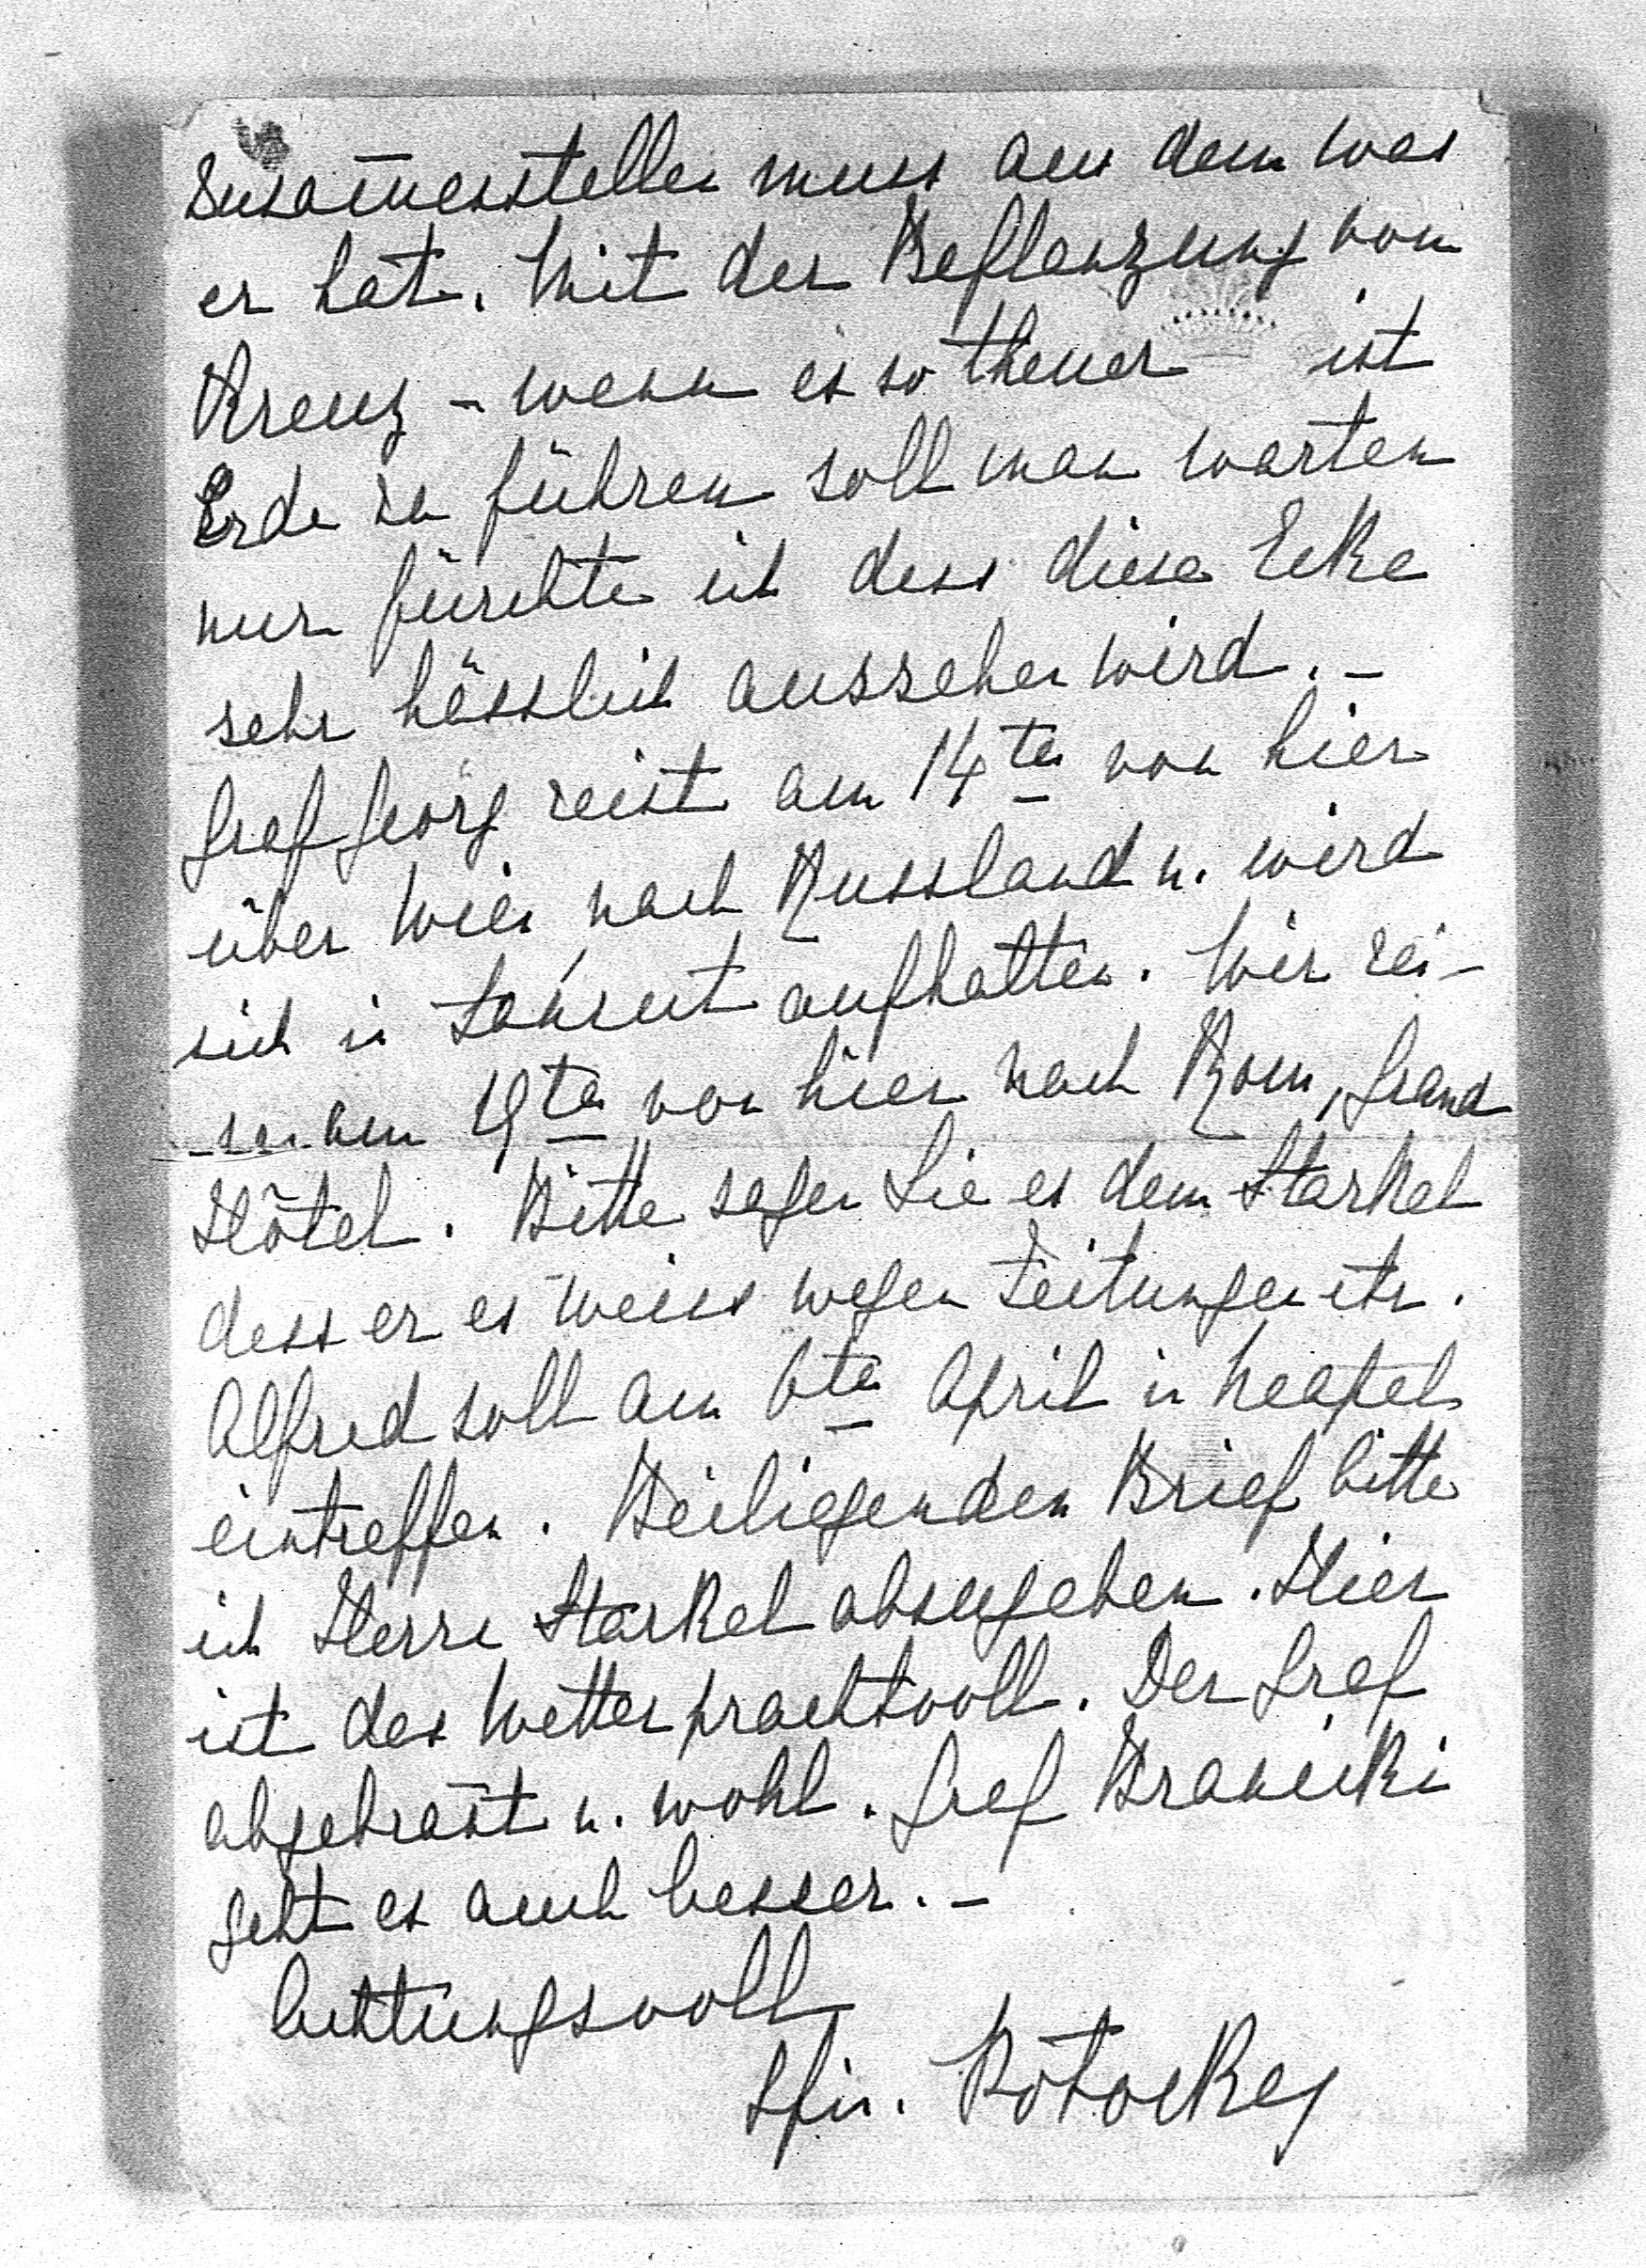 zusam̄enstellen muss aus dem was
er hat. Mit der Beflanzung vom
Kreuz - wenn es so theuer ist
Erde zu führen soll man warten
nur fürchte ich dass diese Ecke
sehr hässlich aussehen wird. -
Graf Georg reist am 14ten von hier
über Wien nach Russland u. wird
sich in Łańcut aufhalten. Wir rei-
sen am 19ten von hier nach Rom, Grand
Hôtel. Bitte sagen Sie es dem Starkel
dass er es weiss wegen Zeitungen etc.
Alfred soll am 6ten April in Neapel
eintreffen. Beiliegenden Brief bitte
ich Herrn Starkel abzugeben. Hier
ist das Wetter prachtvoll. Der Graf
abgebrant u. wohl. Graf Branicki
geht es auch besser. -
Achtungsvoll
Gfin. Potocka